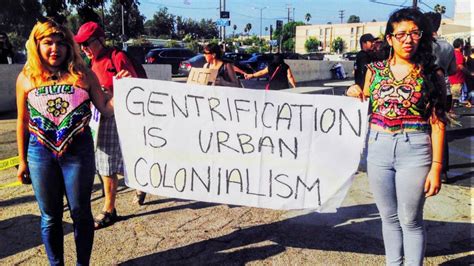 GENTRIFICATION
IS URBAN
COLONIALISM